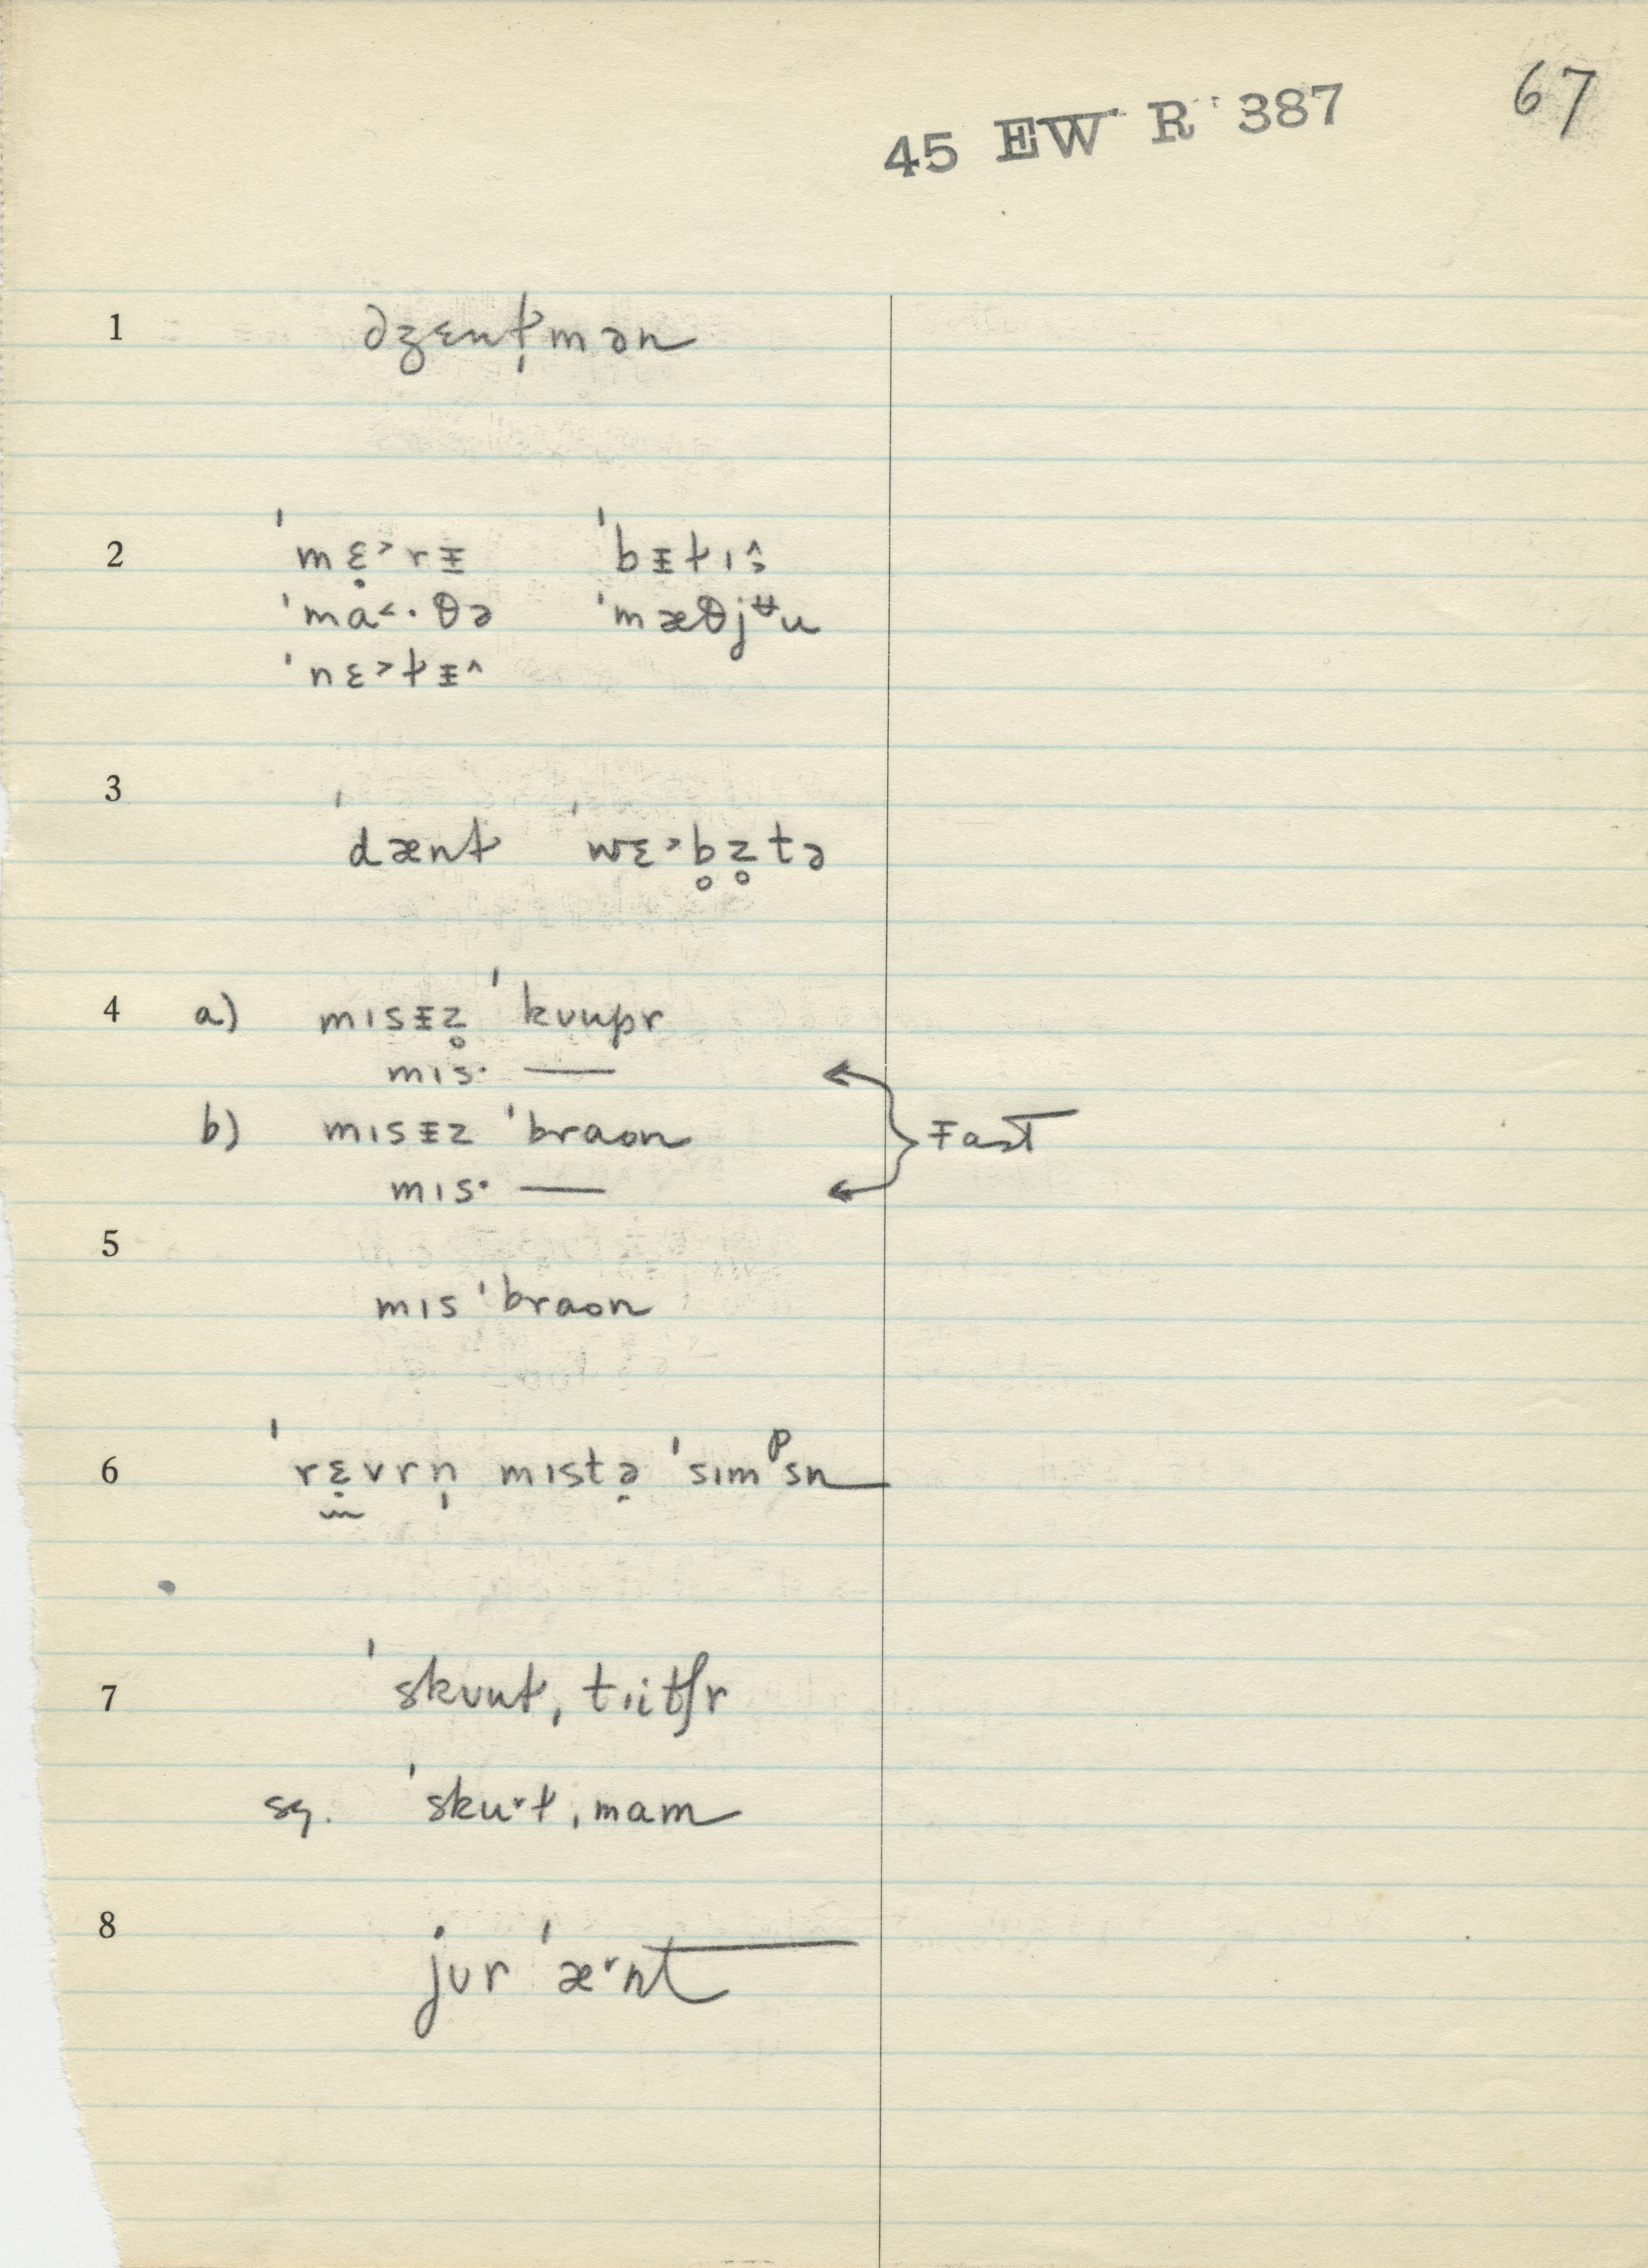 67
45 EW R 387
1 dʒɛnt̬̩mən
2 ˈmɛ̣˃rᵻ ˈbᵻt̬ɪ̭˃
ˈma˂·θə ˈmæθjᵾu
ˈnɛ˃t̬ᵻ^
3 ˈdænt̬ ˈwɛ˃b̥z̥tə
4 a) mɪsᵻz̥ ˈkᴜupr
mɪs· —
b) mɪsᵻz ˈbraon
mɪs· —
Fast
5
mɪs ˈbraon
6 ˈrɛ̣vrn̩ mɪstə̣ ˈsɪmᵖsn
7 ˈskᴜut̬ˌtɪitʃr
sg. ˈsku˅t̬ˌmam
8 jᴜr ˈæ˅nt